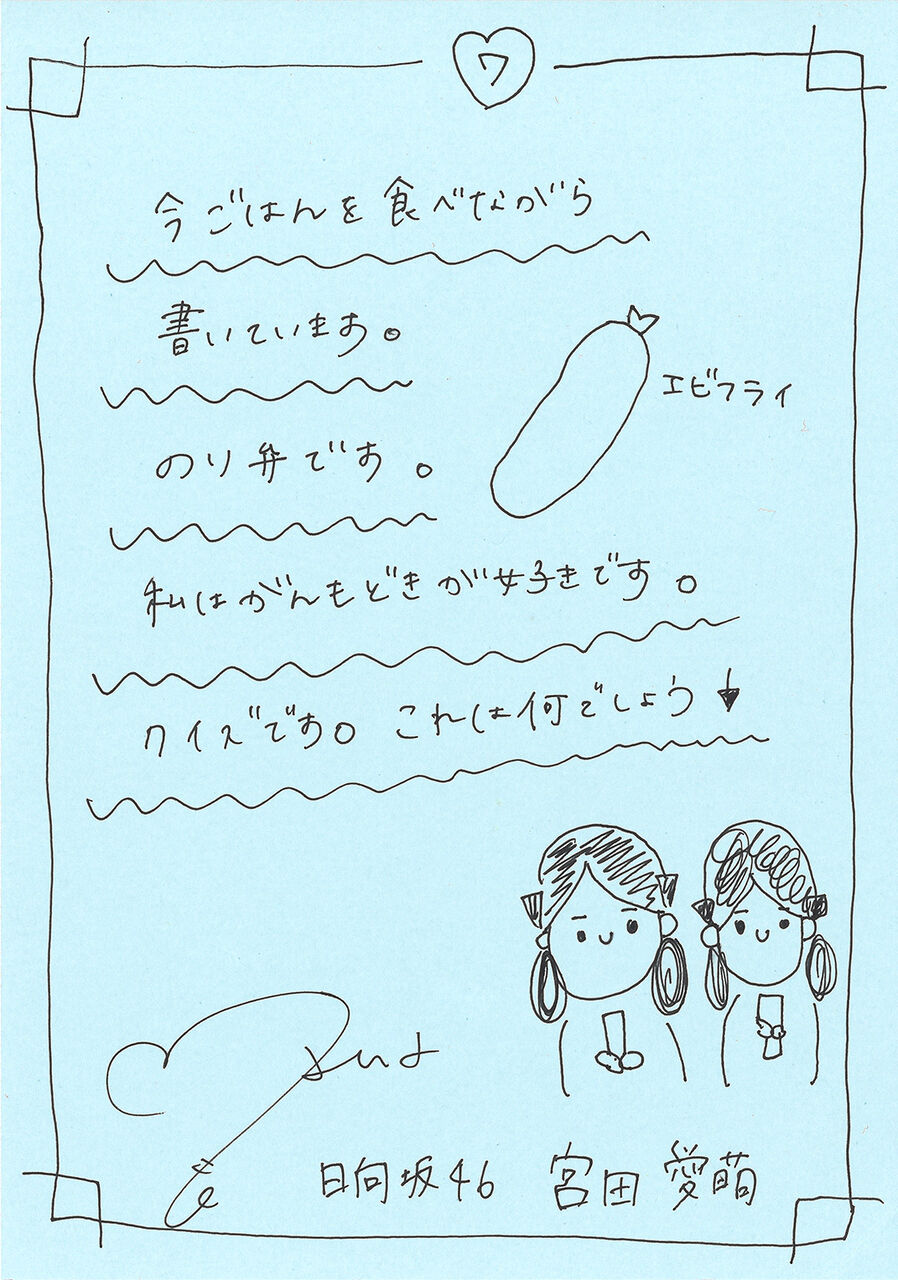 ワ
今ごはんを食べながら
書いています。
エビフライ
のり弁です。
私はがんもどきが好きです。
クイズです。これは何でしょう↓
日向坂46 宮田愛萌